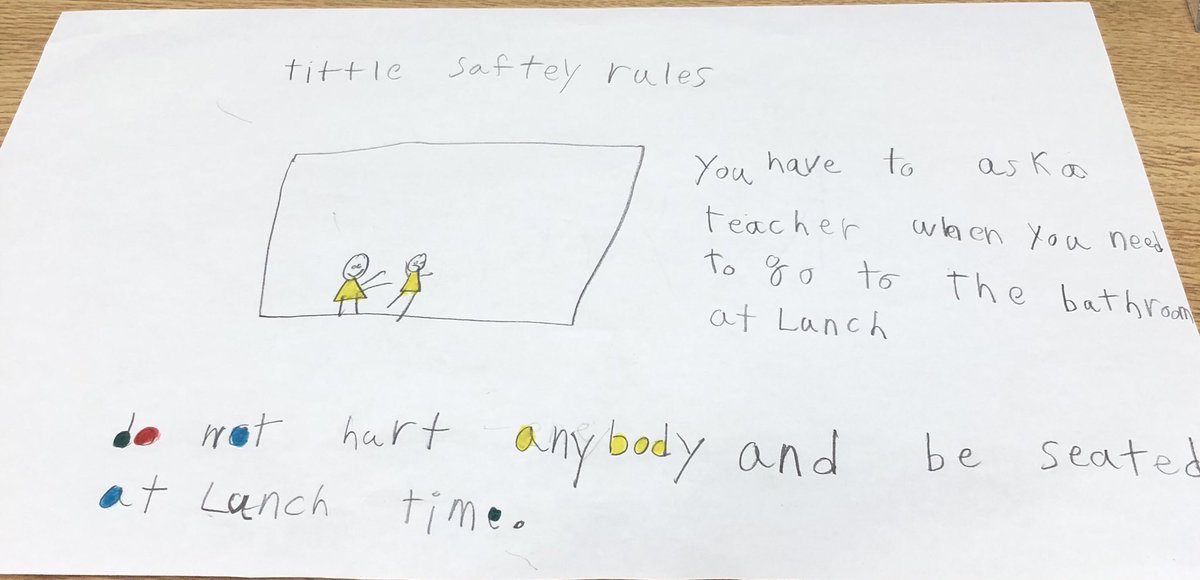 tittle saftey rules
You have to ask a
teacher when you need
to go to the bathroom
at Lanch
do not hart anybody and be seated
at Lanch time.